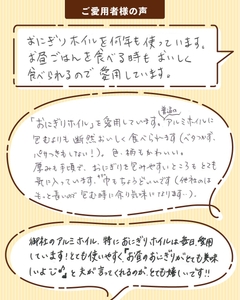 ご愛用者様の声
おにぎりホイルを何年も使っています。
お昼ごはんを食べる時もおいしく
食べられるので愛用しています。
「おにぎりホイル」を愛用しています。普通のアルミホイルに
包むよりも断然おいしく食べられます(べたつかず、
パサつきもしない!)。色、柄もかわいい。
厚みも手頃で、おにぎりを包みやすいところもとても
気に入っています。巾もちょうどいいです(他社のは
もっと長いので包む時に余り気味になります…)。
御社のアルミホイル、特におにぎりホイルは毎日、愛用
しています!とても使いやすく「お昼のおにぎりがとても美味
いよ」と夫が言ってくれるのがとても嬉しいです!!